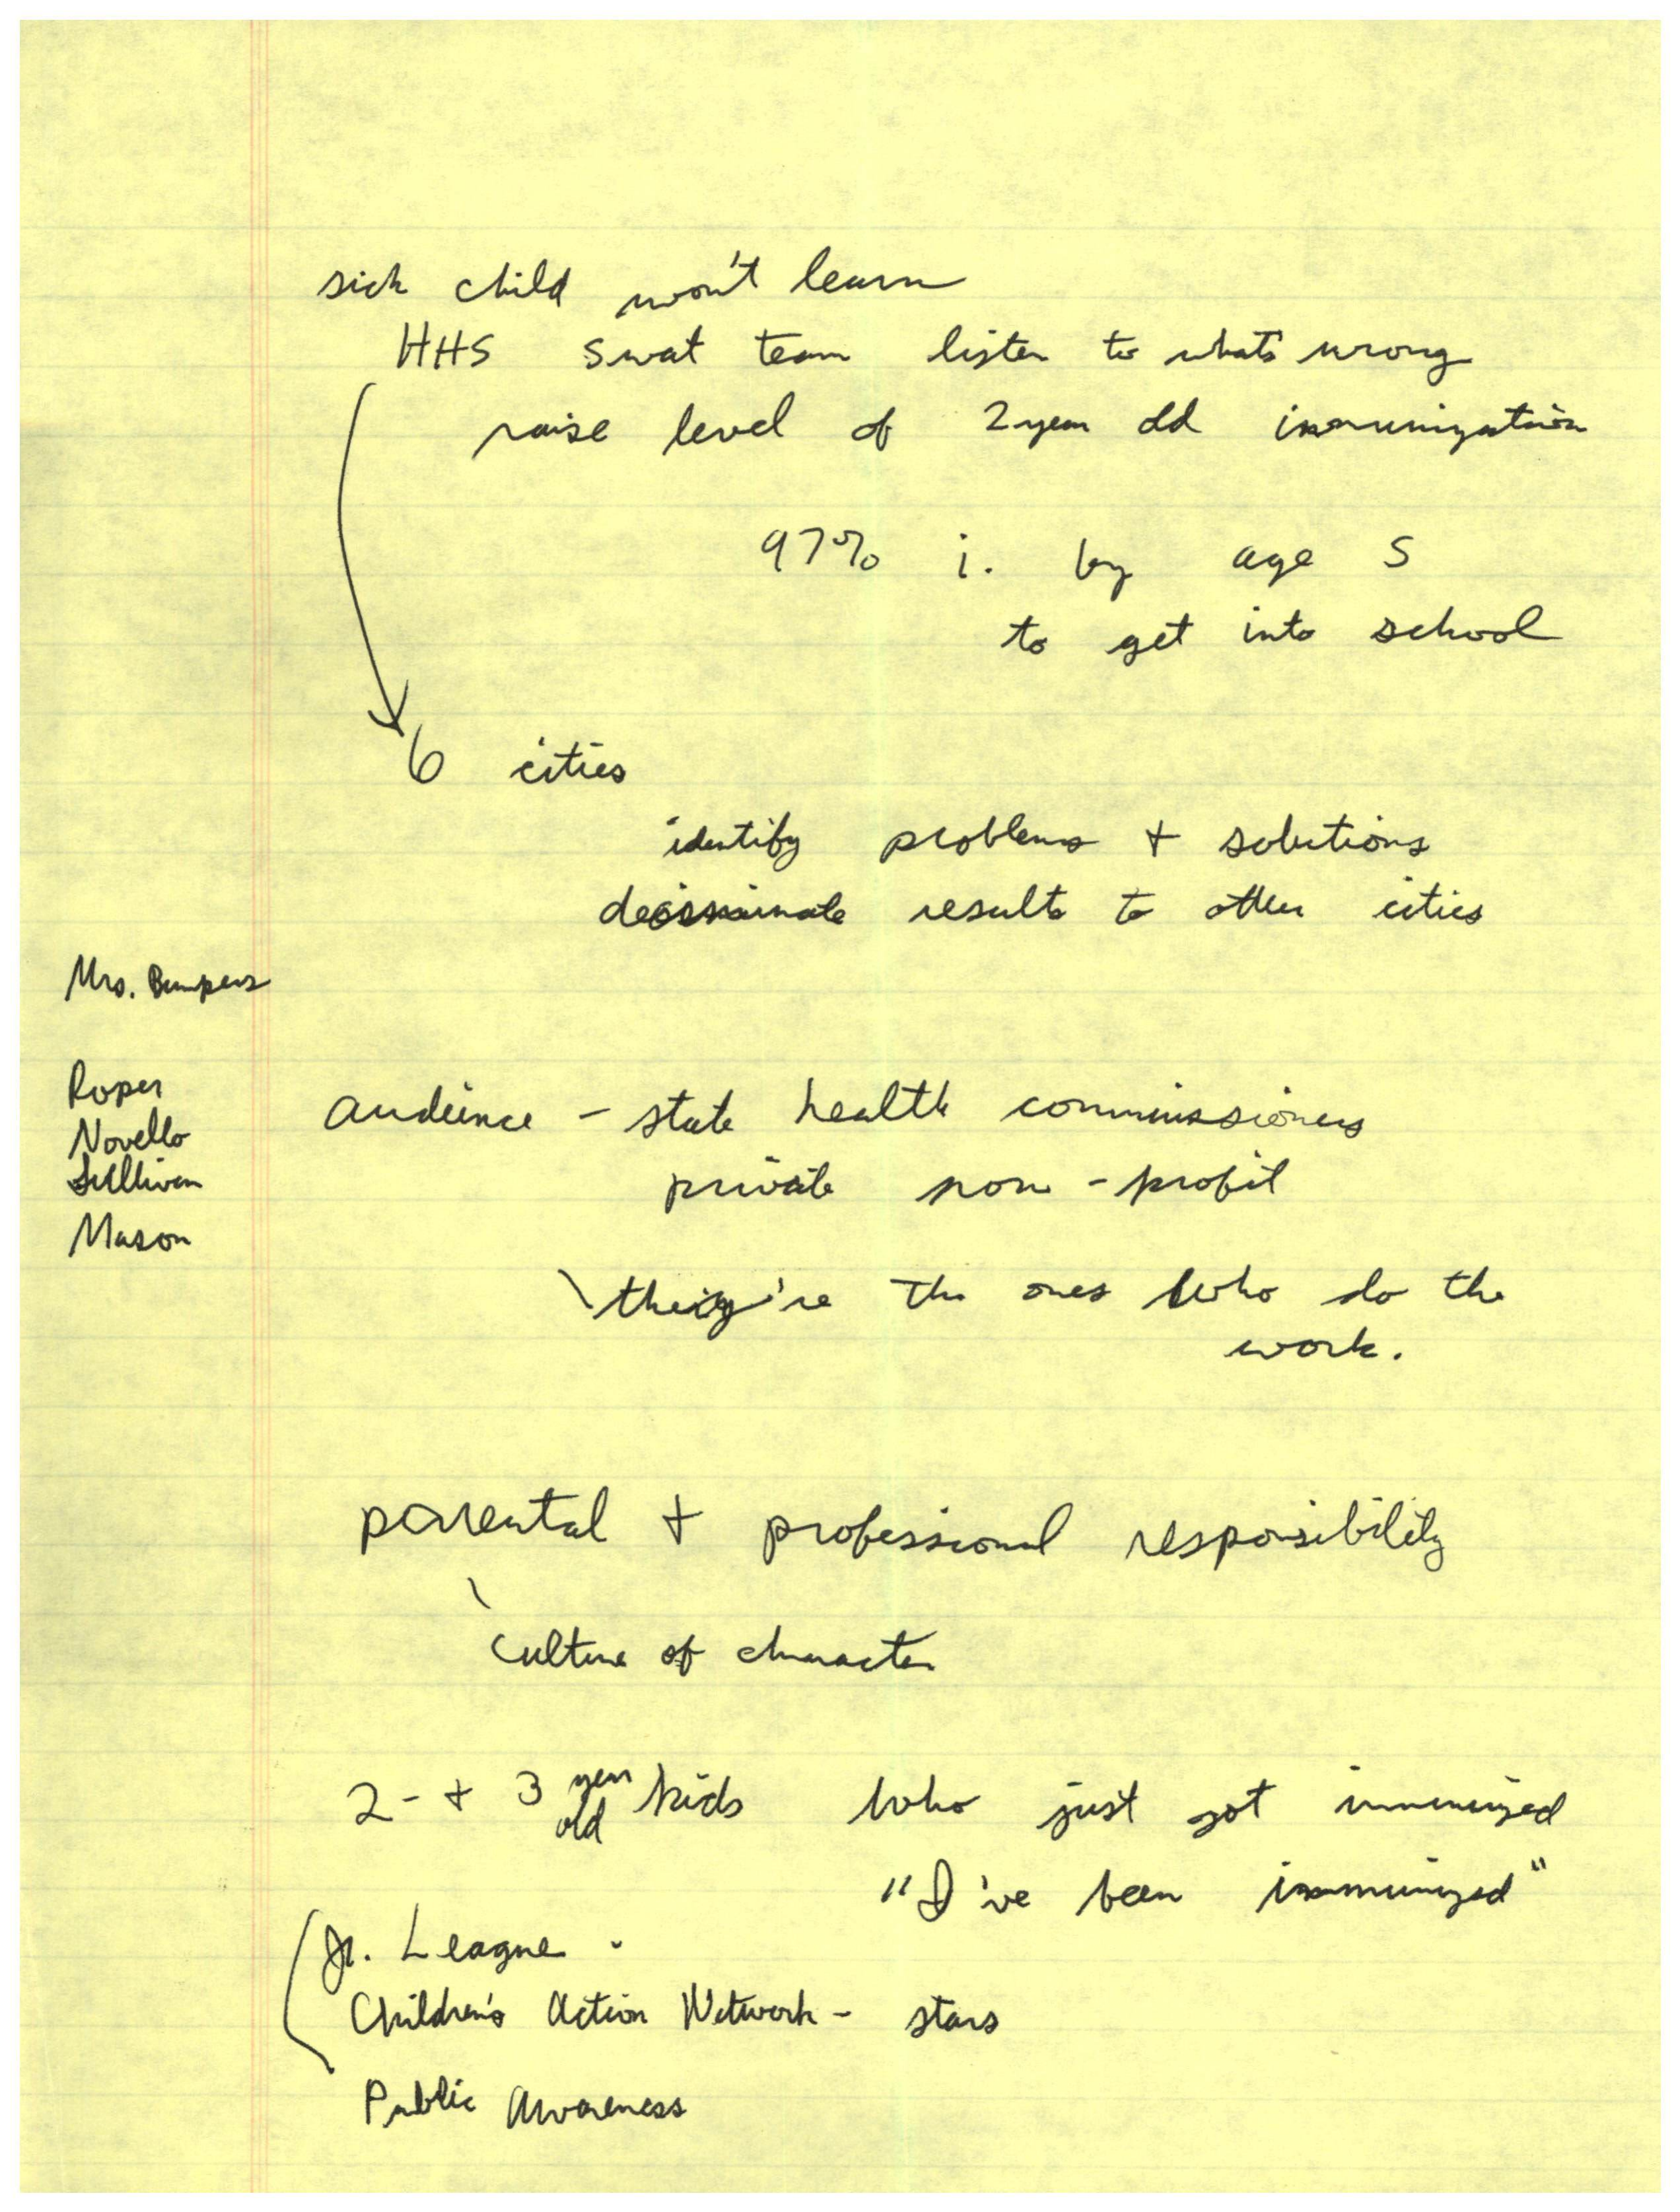 sick child won't learn
HHS swat team listen to whats wrong
raise level of 2 year old immunization
97% i. by age 5
to get into school
6 cities
identify problems + solutions
dessiminate results to other cities
Mrs. Bumpers
Roper
Novello
Sullivan
Mason
audience - state health commissioners
private non-profit
they're the ones who do the
work.
parental + professional responsibility
culture of character
2- + 3 year old kids who just got immunized
"I've been immunized"
Jr. League -
Children's Action Network - stars
Public Awareness